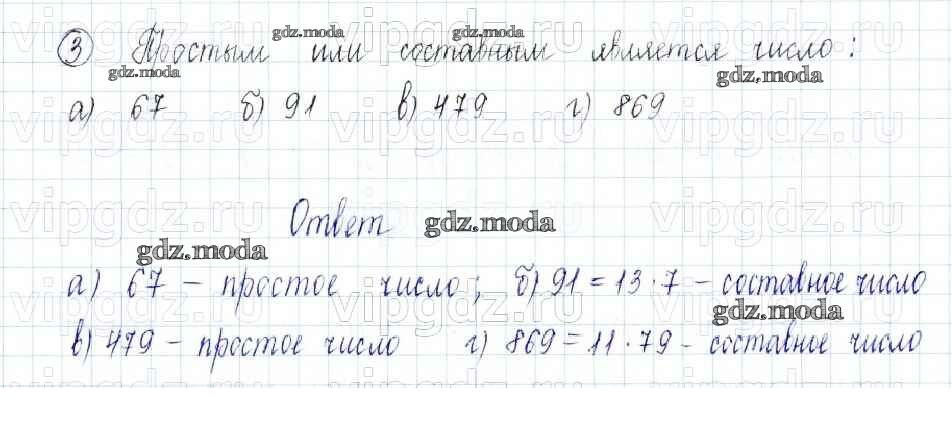 3 Простым или составным является число:
а) 67 б) 91 в) 479 г) 869
Ответ
а) 67 – простое число; б) 91 = 13 · 7 – составное число
в) 479 – простое число г) 869 = 11 · 79 – составное число
gdz.moda
gdz.moda
gdz.moda
gdz.moda
gdz.moda
gdz.moda
gdz.moda
vipgdz.ru
vipgdz.ru
vipgdz.ru
vipgdz.ru